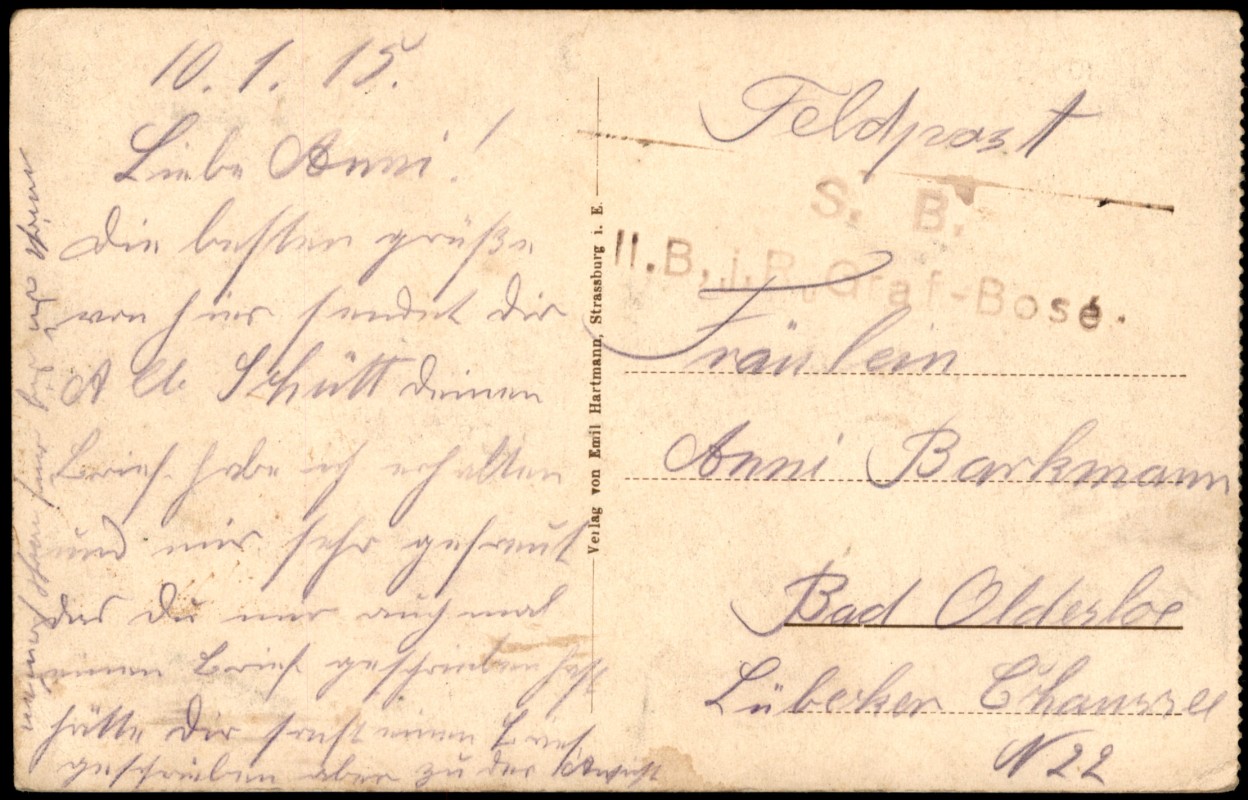 10. 1. 15.
Liebe Anni!
die besten grüße
von hier sendet dir
A Schütt deinen
Brief habe ich erhalten
und mir sehr gefreut
das du mir auch mal
einen Brief geschrieben hast
hätte dir einen Brief
geschrieben aber zu der
Feldpost
S. B.
II. B. j. R. Graf-Bose.
Fräulein
Anni Barkmann
Bad Oldesloe
Lübecker Chaussee
N 22
Verlag von Emil Hartmann, Strassburg i. E.